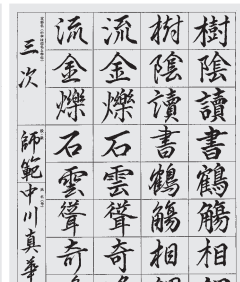 樹陰讀書鶴觴相
樹陰讀書鶴觴相
流金爍石雲聳奇
流金爍石雲聳奇
三次 師範 中川真華